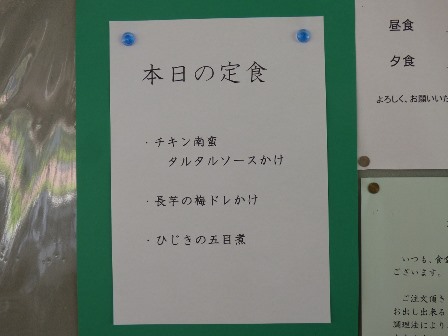 本日の定食
・チキン南蛮
タルタルソースかけ
・長芋の梅ドレかけ
・ひじきの五目煮
昼食
夕食
よろしく、お願いいた
いつも、食
ございます。
ご注文頂き
お出し出来る
調理法により